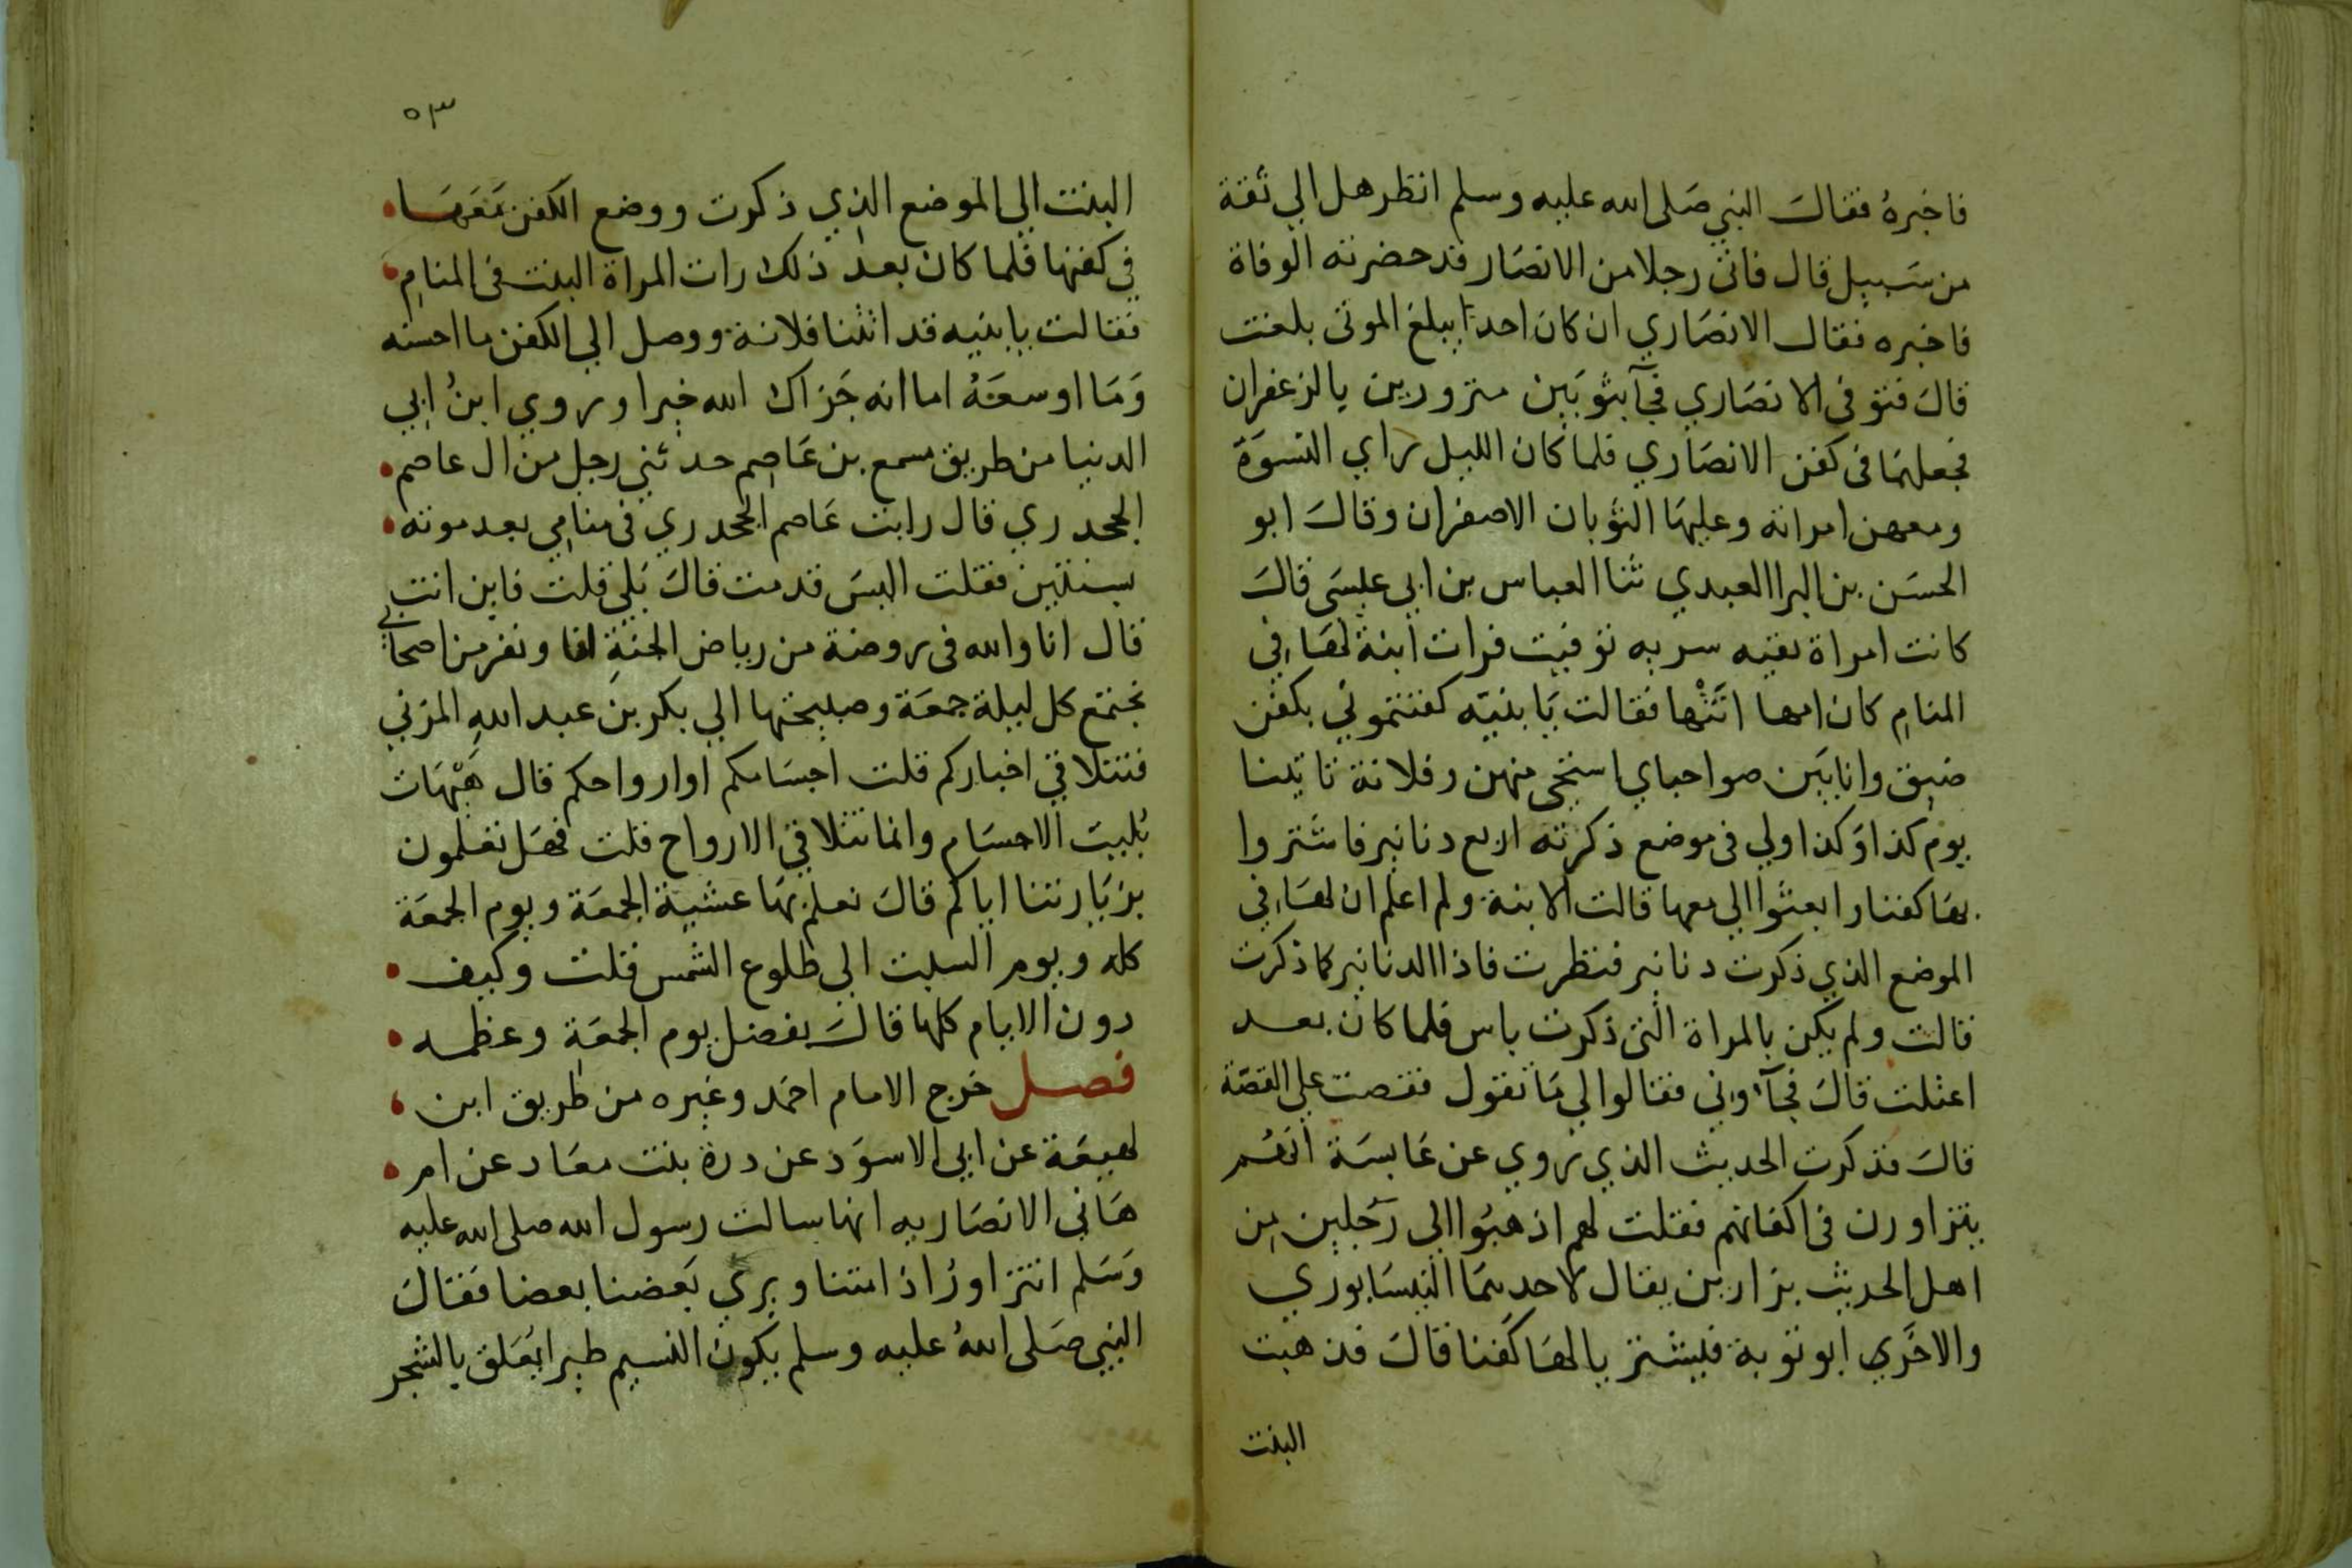 فاخبرهُ فقالَ النبي صَلى الله عليه وسلم انظر هل الي ثقة
من سَبيل قال فاتى رجلا من الانصَار قد حضرته الوفاة
فاخبره فقال الانصَاري ان كان احدًا يبلغ الموتى بلغت
قالَ فتوفى الانصَاري فجآ بثوبَين مزورين بالزعفران
فجعلهمَا فى كفن الانصَاري فلما كان الليل راي النسوَة
ومعهن امراته وعليهَا الثوبان الاصفران وقالَ ابو
الحسَن بن البرا العبدي ثنا العباس بن ابي عيسَى قالَ
كانت امراة تقيه سريه توفيت فرات ابنة لهَا في
المنام كان امها اتَتْها فقالت يَا بنيّه كفنتموني بكفن
ضيق وانا بَين صواحباي استحى منهن وفلانة تاتينا
يوم كذا وَكذا ولي فى موضع ذكرته اربع دنانير فاشتروا
بهَا كفنا وابعثوا الي معها قالت الابنة ولم اعلم ان لهَا في
الموضع الذي ذكرت دنانير فنظرت فاذا الدنانير كما ذكرت
قالت ولم يكن بالمراة التى ذكرت باس فلما كان بعد
اعتلت قالَ فجآونى فقالوا لي مَا تقول فقصت علي القصّة
قالَ فذكرت الحديث الذي روي عن عَايسَة انهُم
يتزاورن فى اكفانهم فقلت لهم اذهبُوا الى رَجلين من
اهل الحديث بزارين يقال لاحدهمَا النيسَابوري
والاخَري ابو توبة فليشتريا لهَا كفنا قالَ فذهبت
البنت
٥٣
البنت الي الموضع الذي ذكرت ووضع الكفن مَعَهَا
في كفنها فلما كان بعد ذلك رات المراة البنت فى المنام
فقالت يا بنيه قد اتتنا فلانة ووصل الي الكفن ما احسنه
وَمَا اوسعَهُ اما انه جَزاك الله خيرا وروي ابنُ ابي
الدنيا من طريق مسمع بن عَاصِم حدثني رجل من ال عاصم
الجحدري قال رايت عَاصم الجحدري فى منامي بعد موته
بسنتين فقلت اليسَ قد مت قالَ بَلي قلت فاين انت
قال انا والله فى روضة من رياض الجنةِ انا ونفر من اصحابي
نجتمع كل ليلة جمعَة وصبيحتها الي بكر بن عبد اللهِ المزني
فنتلاقي اخباركم قلت اجسَامكم او ارواحكم قال هَيْهَات
بُليت الاجسَام وانما تتلاقي الارواح قلت فهَل تعلمون
بزيَارتنا اياكم قالَ نعلم بهَا عشية الجمعَة ويوم الجمعَة
كله ويوم السبت الي طلوع الشمس قلت وكيف
دون الايام كلها قالَ بفضل يوم الجمعَة وعظمه
فصل خرج الامام احمَد وغيره من طريق ابن
لهيعَة عن ابي الاسوَد عن درة بنت معَاد عن ام
هَاني الانصَاريه انها سالت رسول الله صلى الله عليه
وَسَلم انتزاورُ اذا متنا ويري بَعضنا بعضا فقالَ
النبي صَلى اللهُ عليه وسلم يَكون النسيم طيرا يَعلق بالشجر